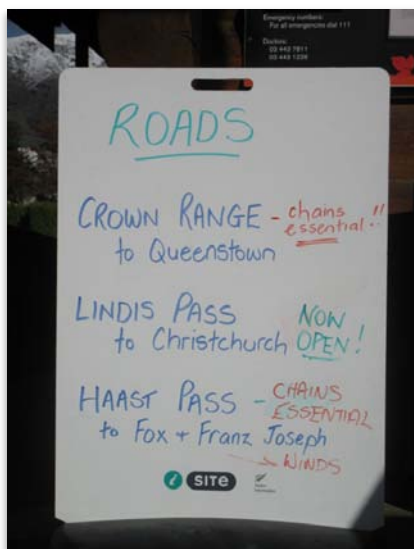 Emergency numbers:
For all emergencies dial 111
Doctors:
03 443 7811
03 443 1226
ROADS
CROWN RANGE - chains
essential!!
to Queenstown
LINDIS PASS NOW
to Christchurch OPEN!
HAAST PASS - CHAINS
ESSENTIAL
to Fox + Franz Joseph
→ WINDS
i SITE